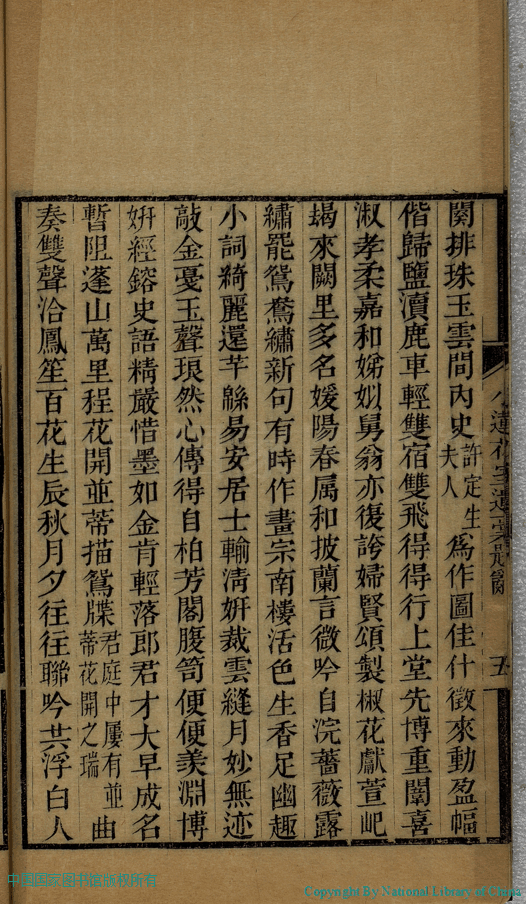 闋排珠玉雲間內史許定生夫人為作圖佳什徵來動盈幅
偕歸鹽瀆鹿車輕雙宿雙飛得得行上堂先博重闈喜
淑孝柔嘉和娣姒舅翁亦復誇婦賢頌製椒花獻萱屺
朅來闕里多名媛陽春属和披蘭言微吟自浣薔薇露
繡罷鴛鴦繡新句有時作畫宗南樓活色生香足幽趣
小詞綺麗還芊緜易安居士輸清妍裁雲縫月妙無迹
敲金戛玉聲琅然心傳得自柏芳閣腹笥便便羨淵博
姸經鎔史語精嚴惜墨如金肯輕落郎君才大早成名
暫阻蓬山萬里程花開並蒂描鴛牒君庭中屢有並蒂花開之瑞曲
奏雙聲洽鳳笙百花生辰秋月夕往往聯吟共浮白人
小蓮花室遺稾題辭
五
中国国家图书馆版权所有
Copyright By National Library of China